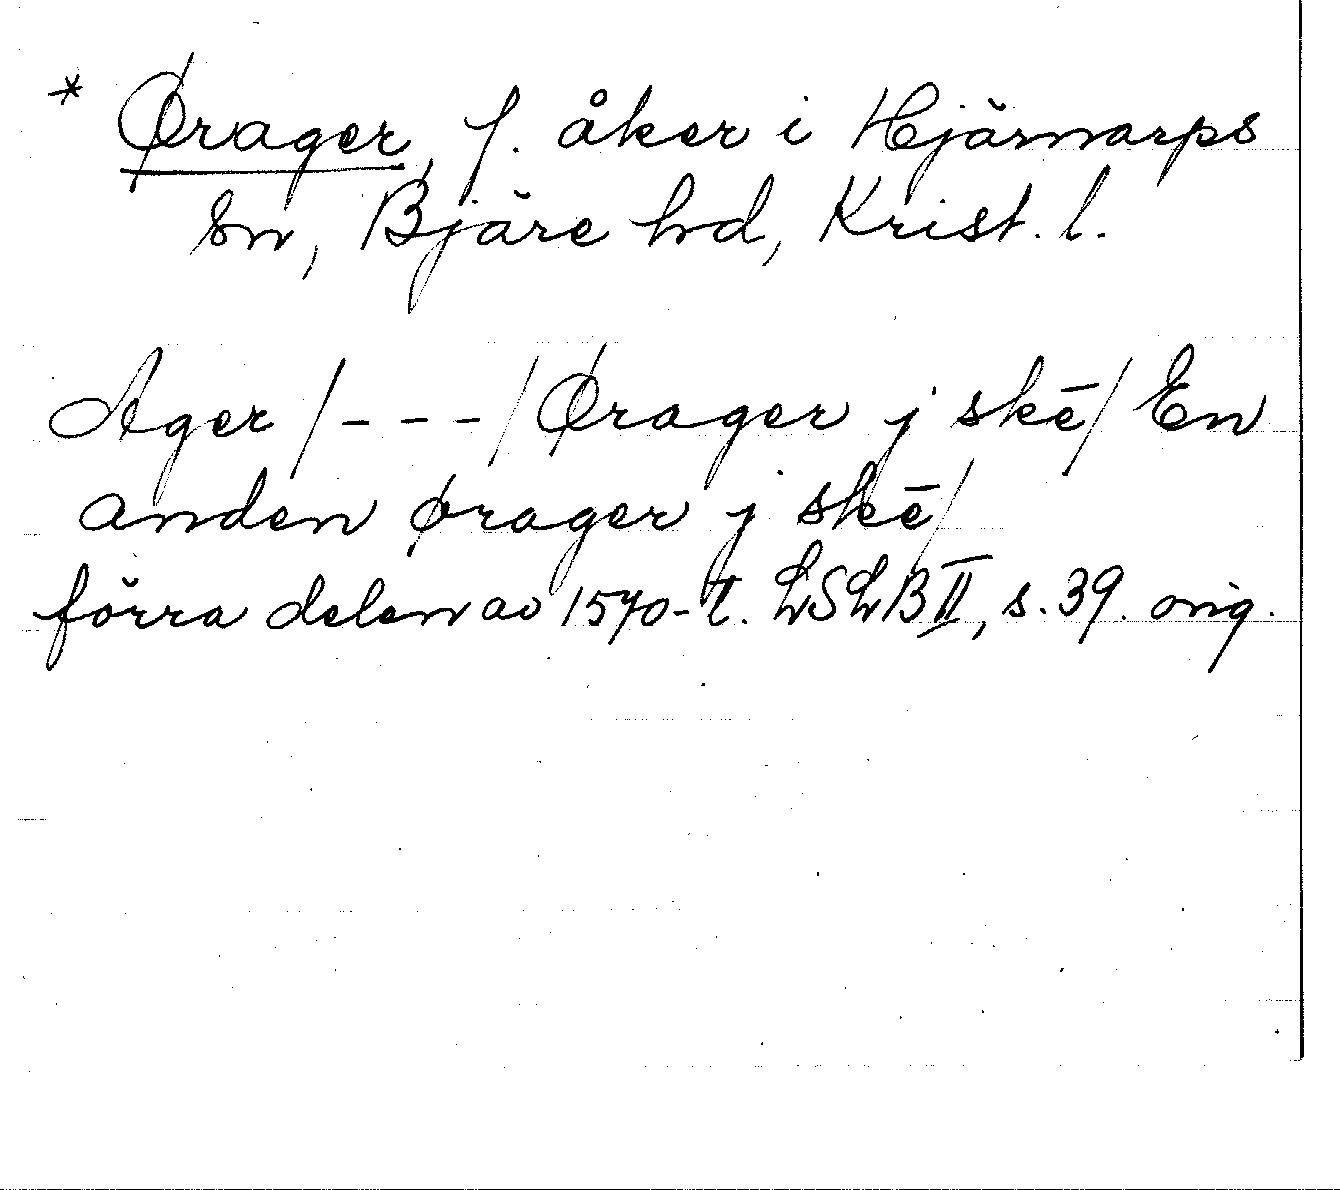 * Ørager, f. åker i Hjärnarps
sn, Bjäre hd, Krist. l.
Ager /---/ Ørager j skē/ En
anden ørager j skē/
förra delen av 1570-t. LSLB II, s. 39. orig.